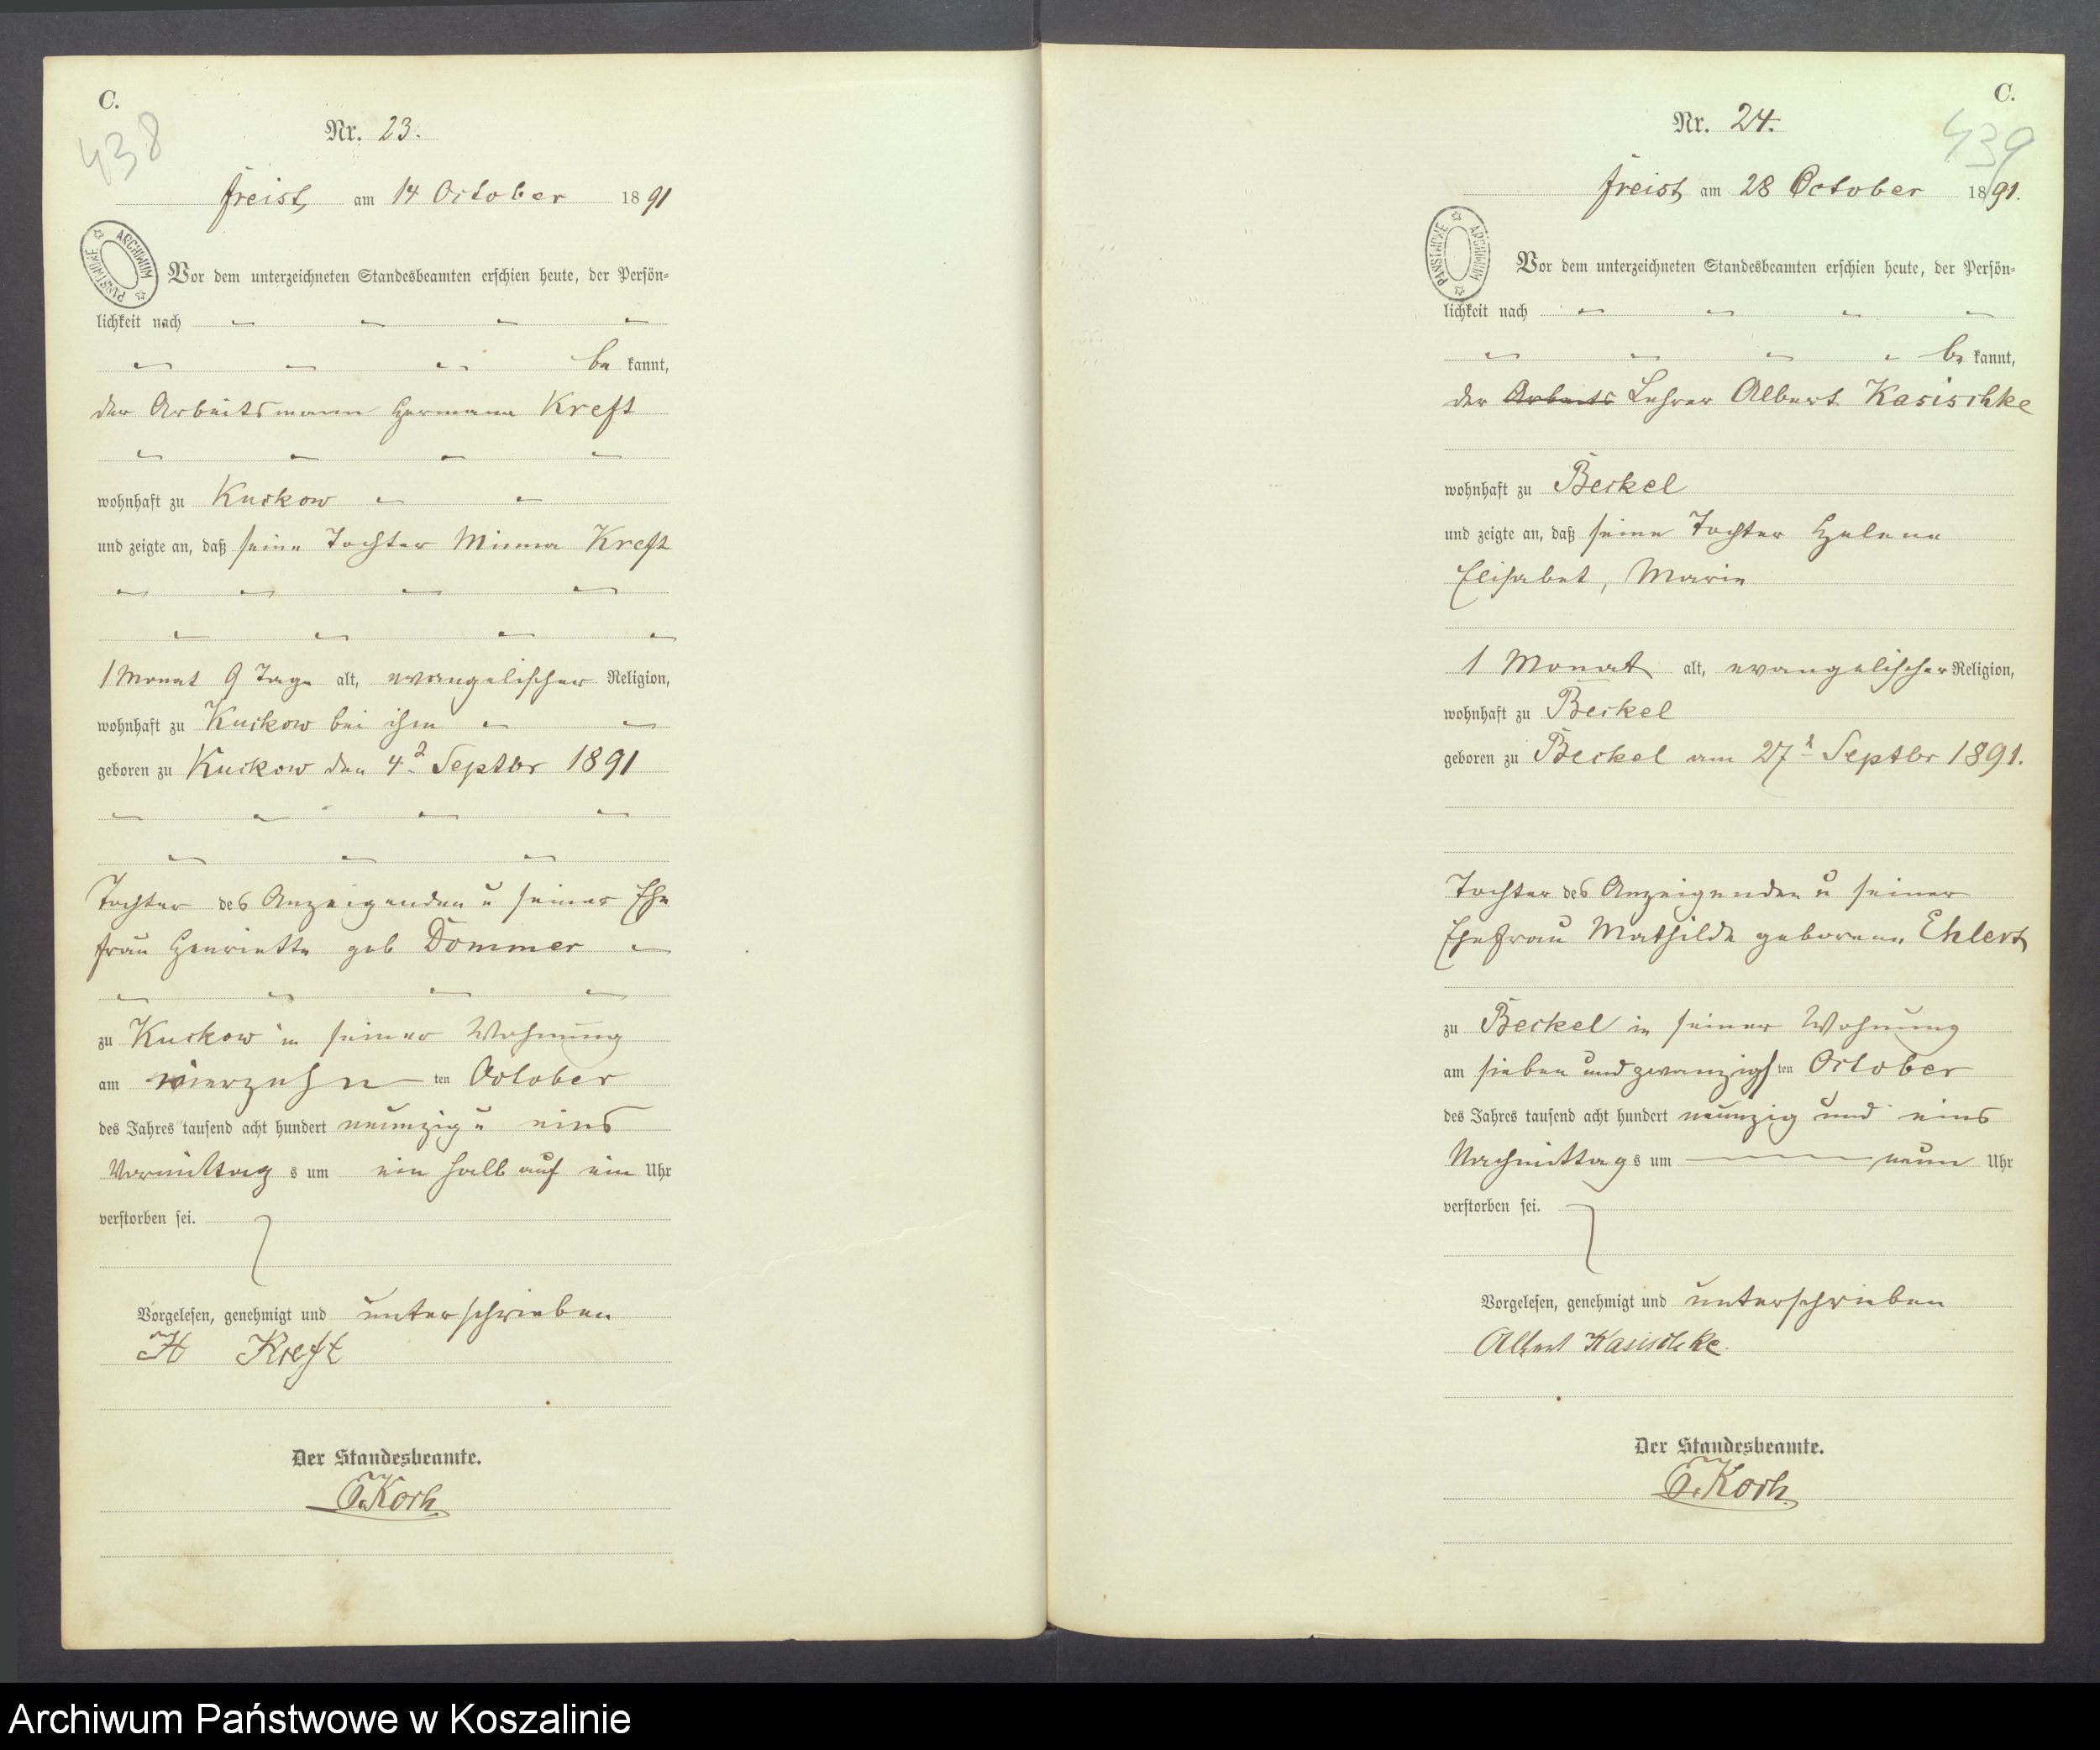 C.
438
Nr. 23.
Freist, am 14 October 1891
ARCHIWUM PAŃSTWOWE
Vor dem unterzeichneten Standesbeamten erschien heute, der Persön-
lichkeit nach
be kannt,
der Arbeitsmann Hermann Kreft
wohnhaft zu Kuckow
und zeigte an, daß seine Tochter Minna Kreft
1 Monat 9 Tage alt, evangelischer Religion,
wohnhaft zu Kuckow bei ihm
geboren zu Kuckow den 4. Septbr 1891
Tochter des Anzeigenden u seiner Ehe
frau Henriette geb Dommer
zu Kuckow in seiner Wohnung
am vierzehn ten October
des Jahres tausend acht hundert neunzig u eins
Vormittag s um ein halb auf ein Uhr
verstorben sei.
Vorgelesen, genehmigt und unterschrieben
H Kreft
Der Standesbeamte.
Koch
C.
439
Nr. 24.
Freist, am 28 October 1891.
ARCHIWUM PAŃSTWOWE
Vor dem unterzeichneten Standesbeamten erschien heute, der Persön-
lichkeit nach
be kannt,
der Arbeits Lehrer Albert Kasischke
wohnhaft zu Beckel
und zeigte an, daß seine Tochter Helene
Elisabet, Marie
1 Monat alt, evangelischer Religion,
wohnhaft zu Beckel
geboren zu Beckel am 27 Septbr 1891.
Tochter des Anzeigenden u seiner
Ehefrau Mathilde geborene Ehlert
zu Beckel in seiner Wohnung
am sieben und zwanzigs ten October
des Jahres tausend acht hundert neunzig und eins
Nachmittag s um neun Uhr
verstorben sei.
Vorgelesen, genehmigt und unterschrieben
Albert Kasischke.
Der Standesbeamte.
Koch.
Archiwum Państwowe w Koszalinie